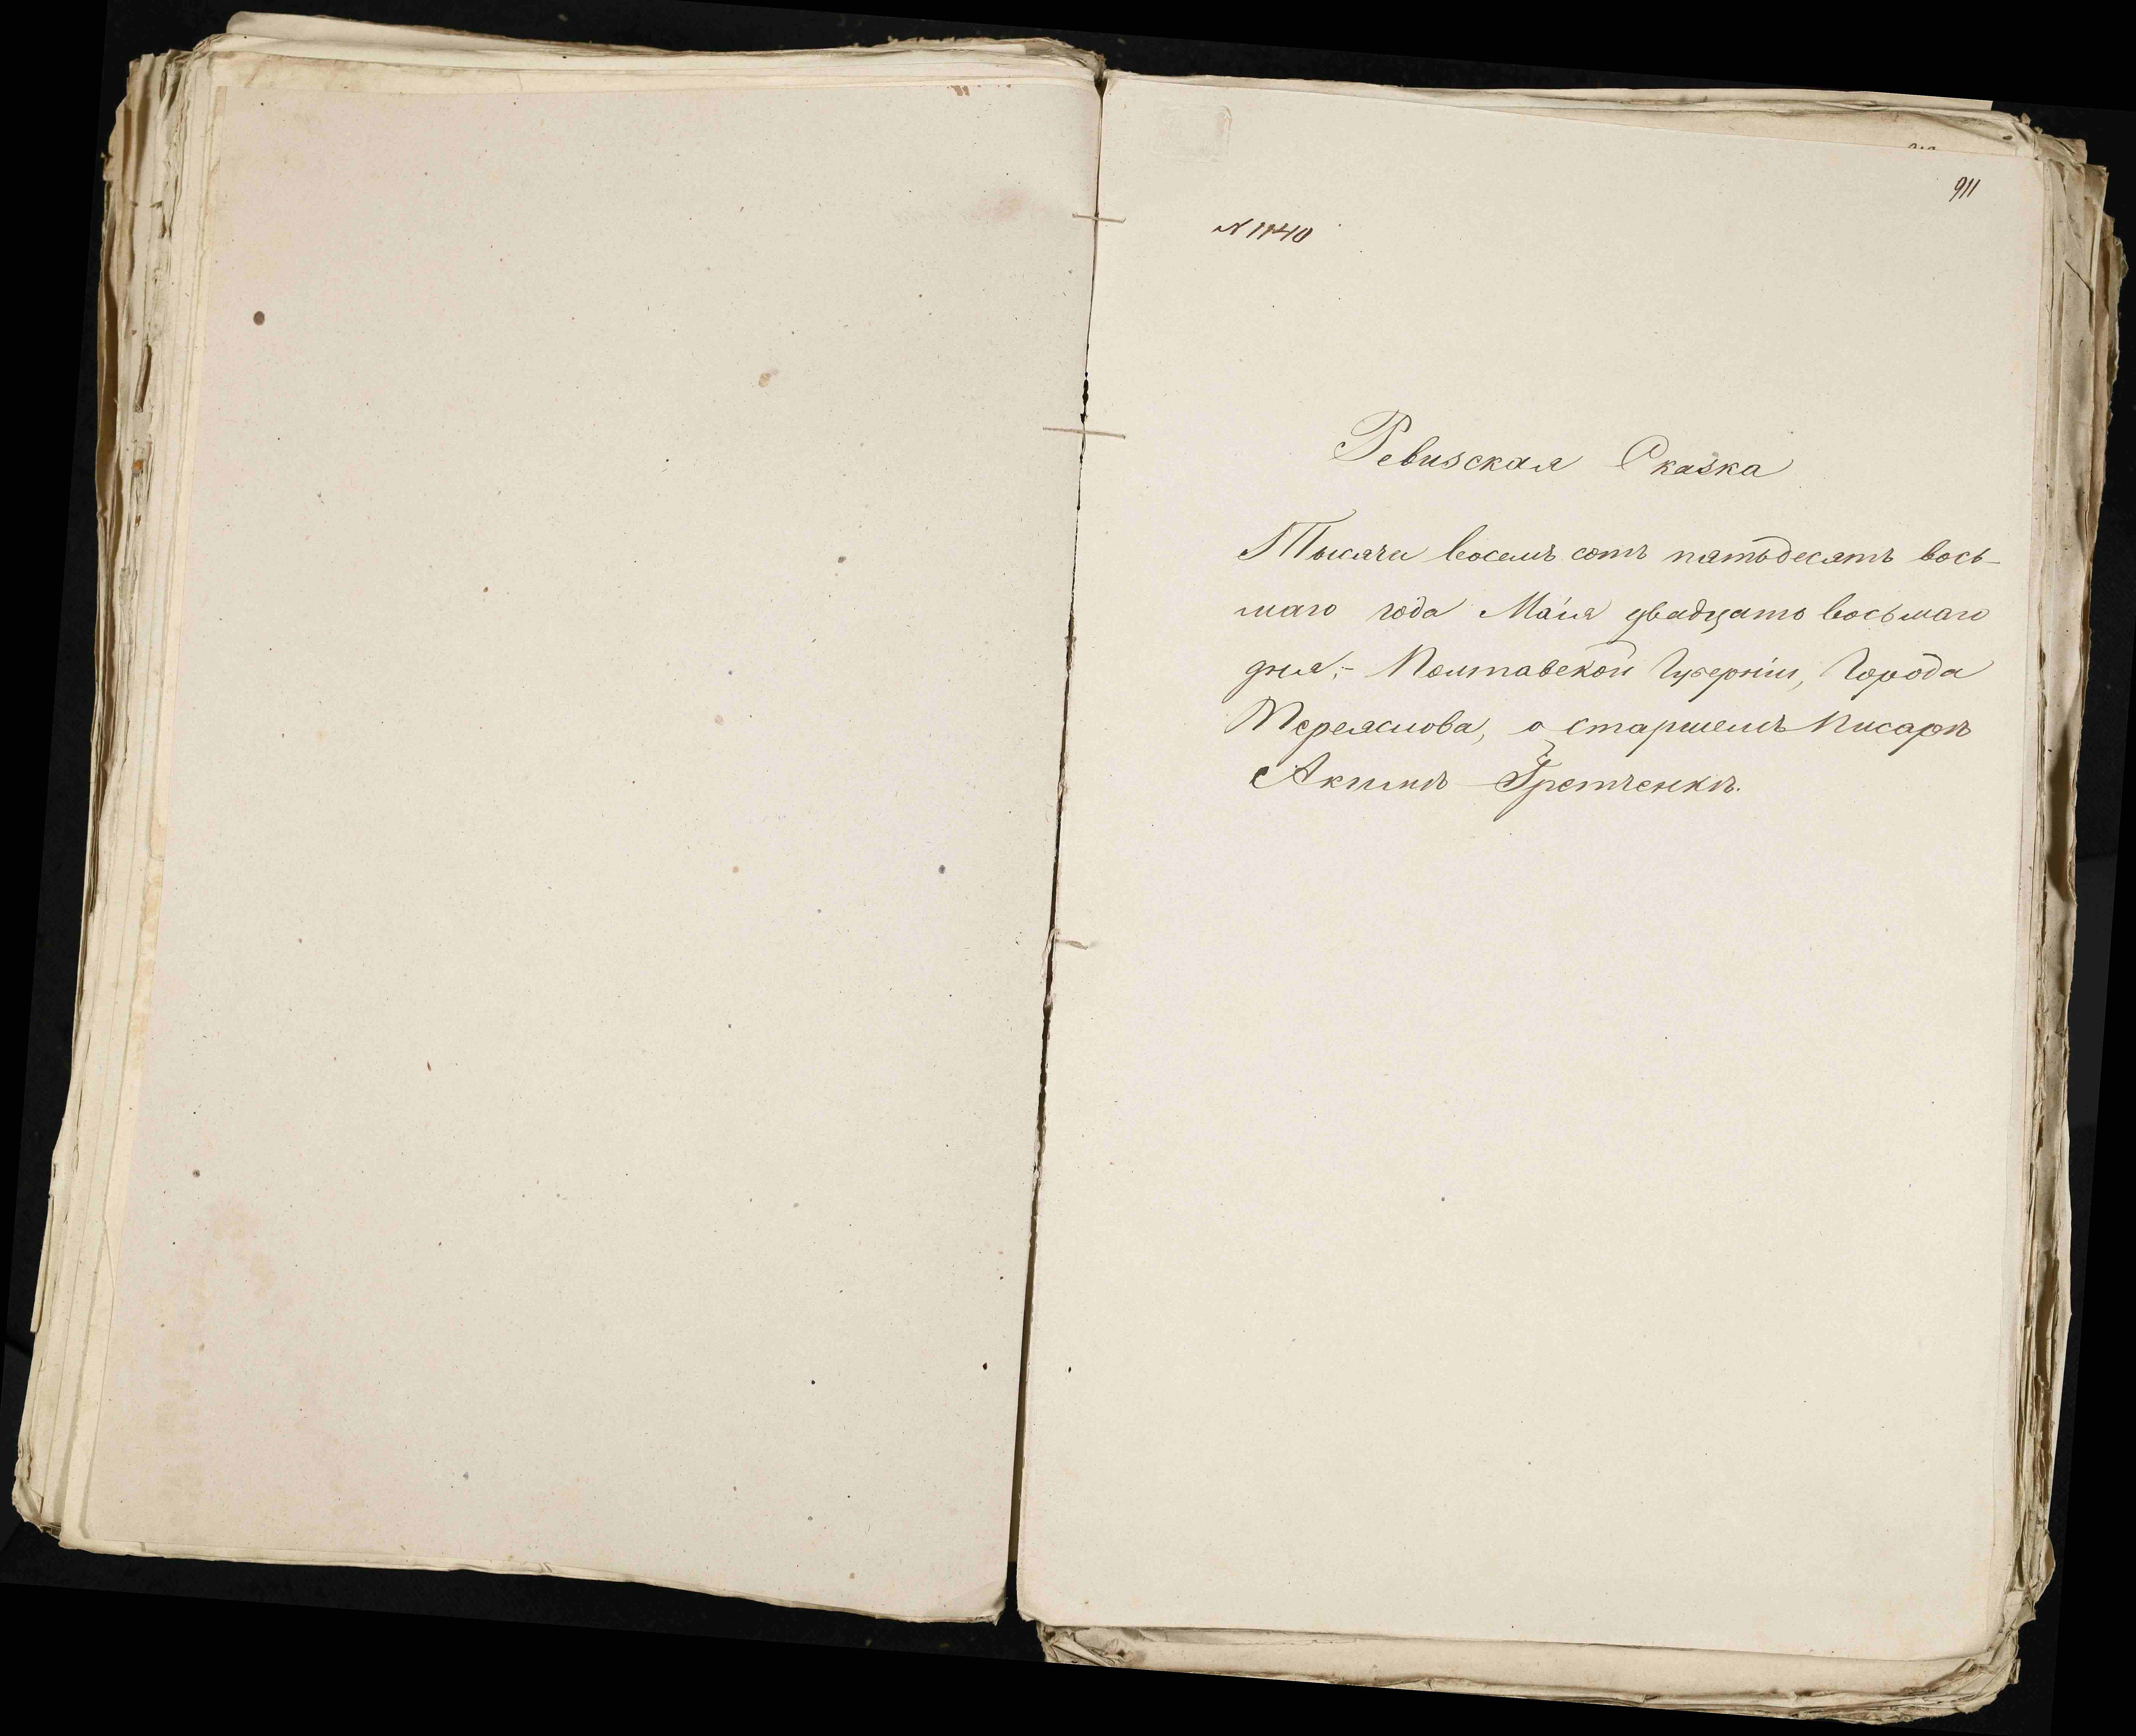 911
N 1140
Ревизская Сказка
Тысяча восемь сотъ пятьдесятъ вось-
маго года Маія двадцать восьмаго
дня;- Полтавской Губерніи, Города
Переяслова, о старшемъ Писарѣ
Акимѣ Гретченкѣ.